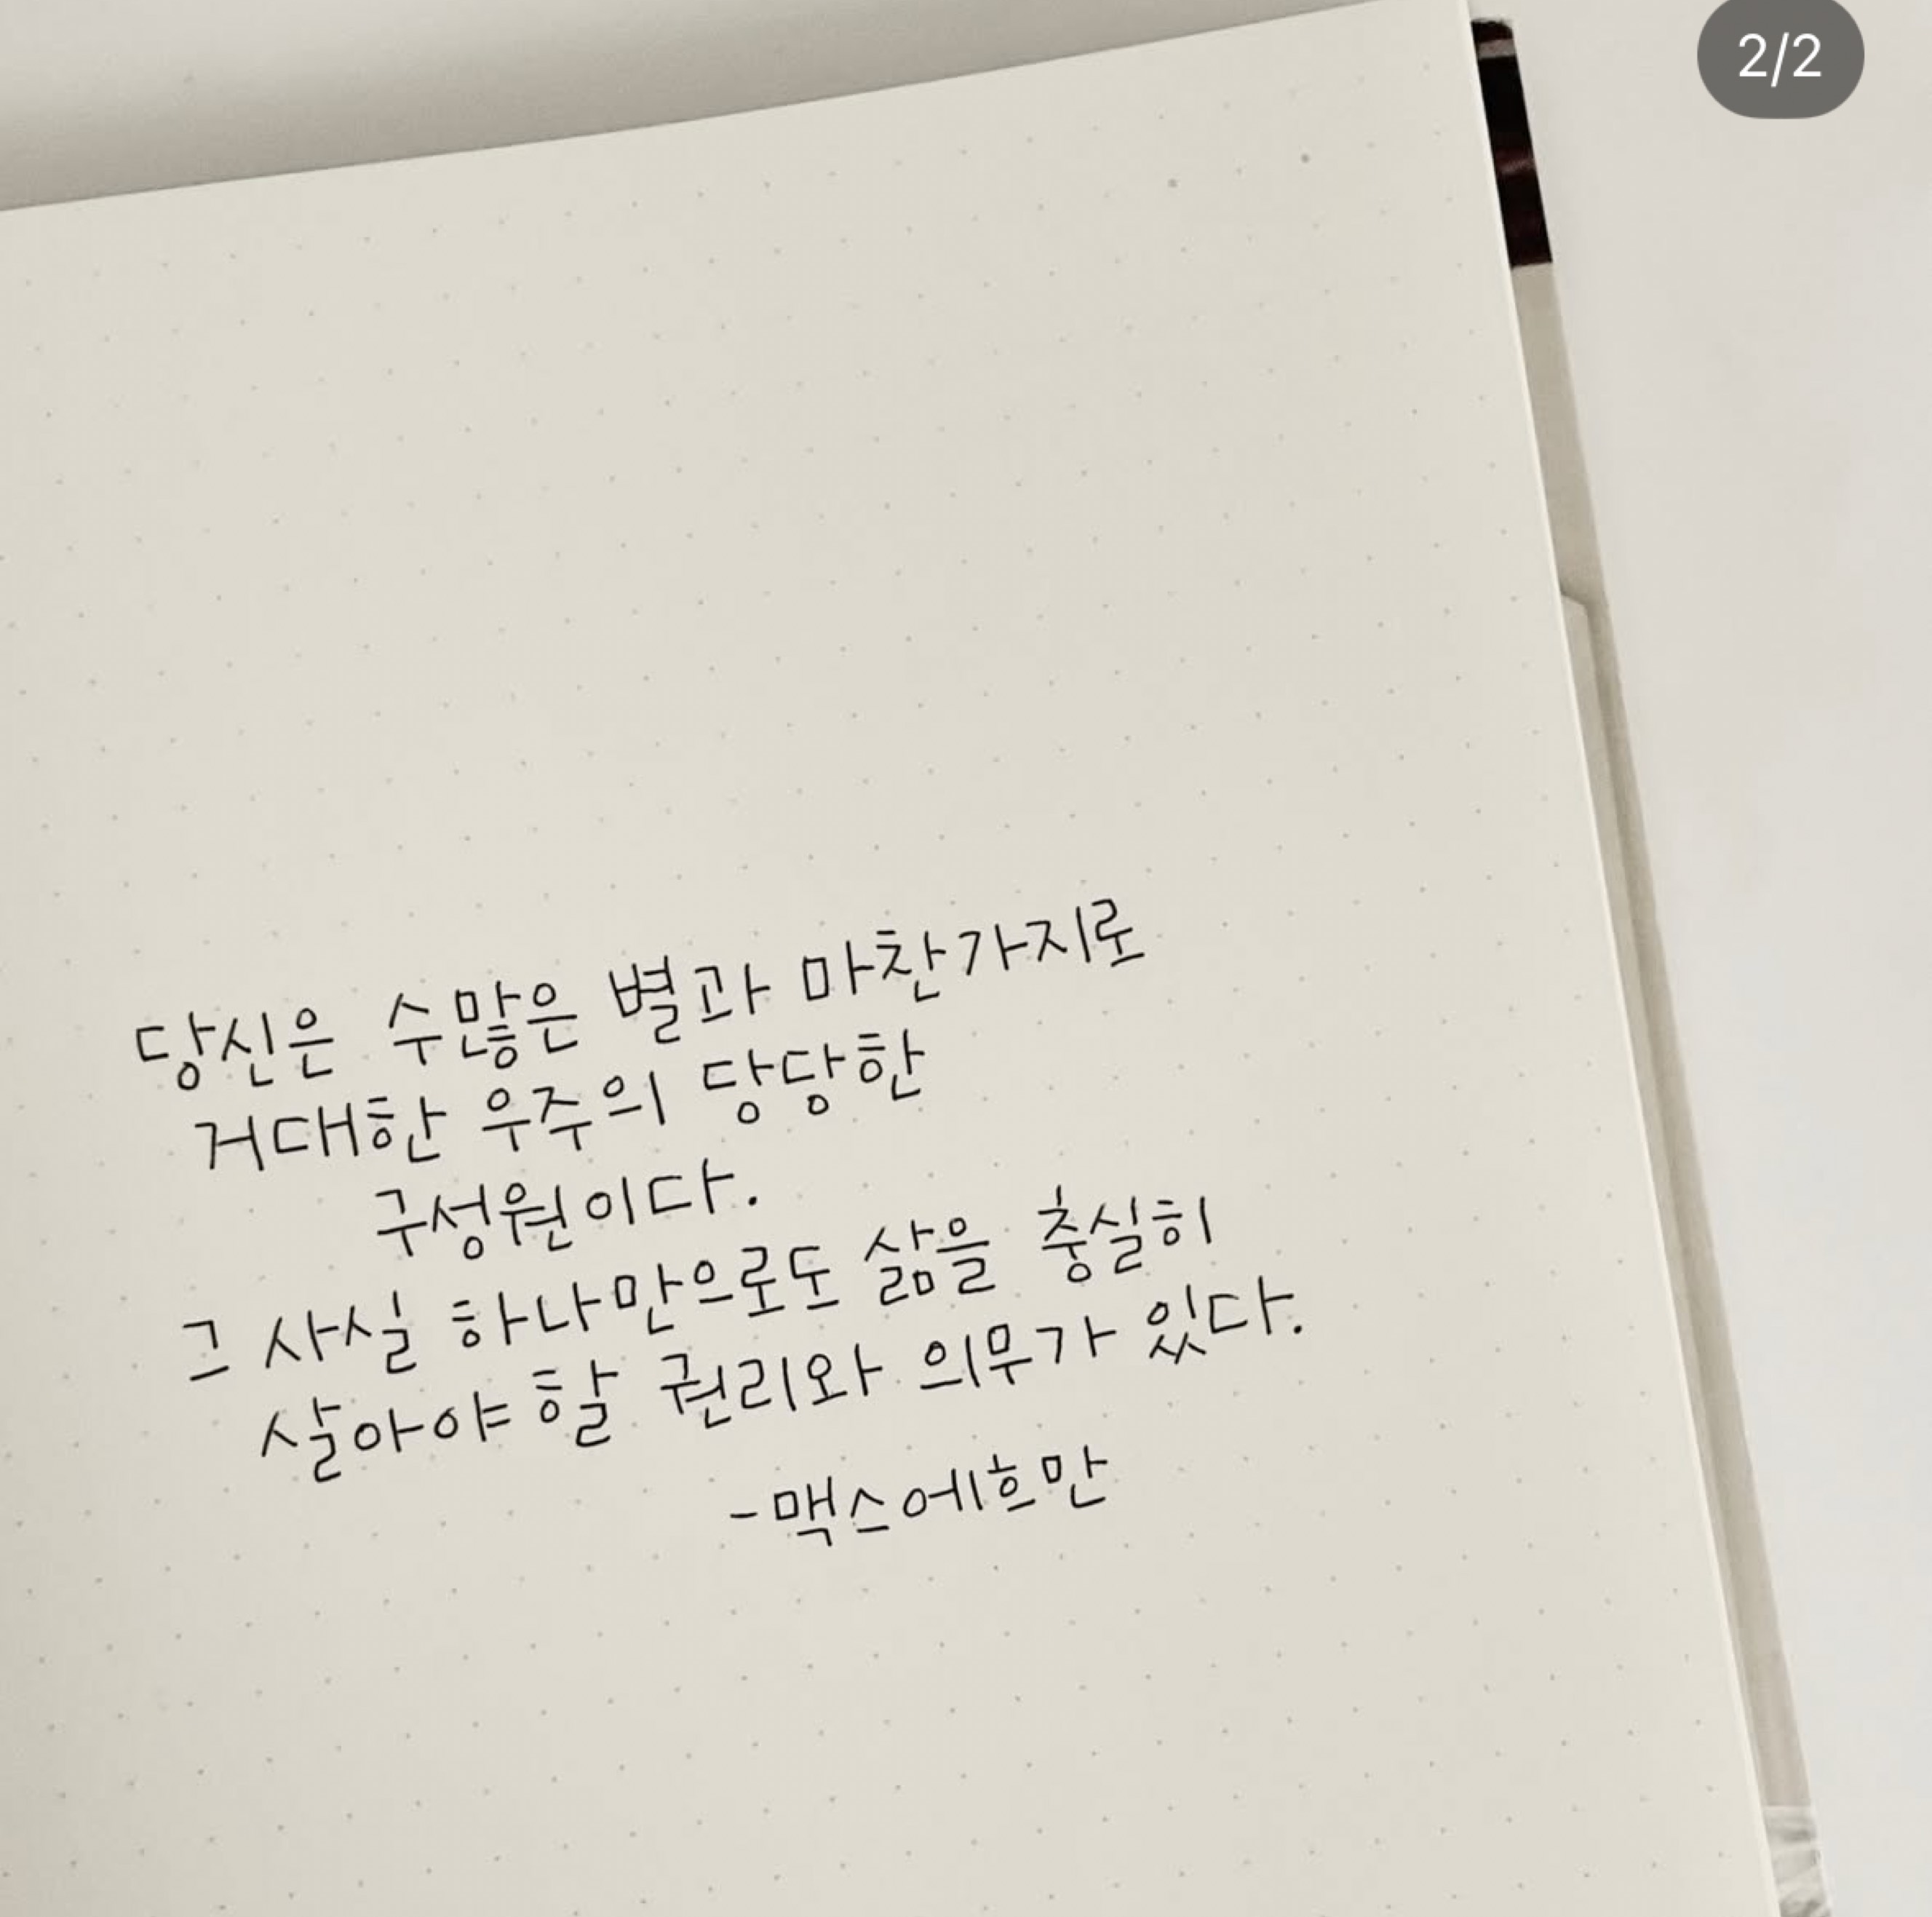 2/2
당신은 수많은 별과 마찬가지로
거대한 우주의 당당한
구성원이다.
그 사실 하나만으로도 삶을 충실히
살아야 할 권리와 의무가 있다.
-맥스에흐만